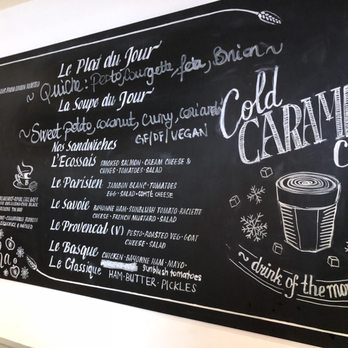 Le Plat du Jour
~ Quiche: Pesto, Courgette, feta, Onion ~
La Soupe du Jour
~ Sweet potato, coconut, curry, coriander
GF/DF/VEGAN
Nos Sandwiches
L'Ecossais SMOKED SALMON-CREAM CHEESE &
CHIVES-TOMATOES-SALAD
Le Parisien JAMBON BLANC-TOMATOES-
EGG-SALAD-COMTÉ CHEESE
Le Savoie BAYONNE HAM-SUNBLUSH TOMATO-RACLETTE
CHEESE-FRENCH MUSTARD-SALAD
Le Provencal (V) PESTO-ROASTED VEG-GOAT
CHEESE-SALAD
Le Basque CHICKEN-BAYONNE HAM-MAYO-
sunblush tomatoes
Le Classique HAM-BUTTER-PICKLES
Cold
CARAM
C
drink of the mon